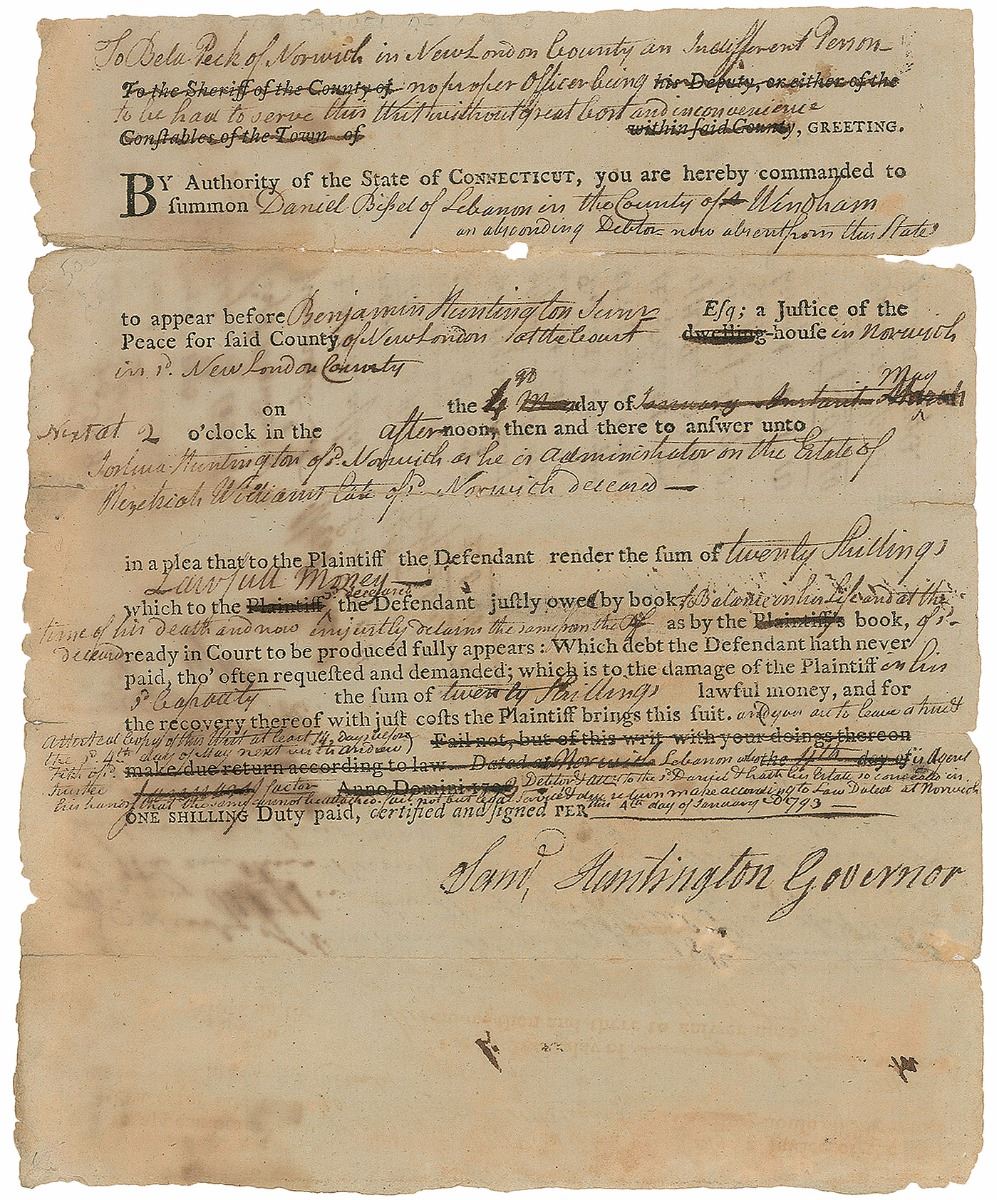 To Bela Peck of Norwich in New London County an Indifferent Person
To the Sheriff of the County of no proper Officer being his Deputy, or either of the
to be had to serve this Writ without great Cost and inconvenience
Conſtables of the Town of within ſaid County, GREETING.
BY Authority of the State of CONNECTICUT, you are hereby commanded to
ſummon Daniel Bissel of Lebanon in the County of Windham
an absconding Debtor now absent from this State
to appear before Benjamin Huntington Junr Esq; a Juſtice of the
Peace for ſaid County of New London at the Court dwelling-houſe in Norwich
in sd. New London County
on the 4 day of January Instant May
Next at 2 o'clock in the afternoon, then and there to anſwer unto
Joshua Huntington of sd. Norwich as he is Administrator on the Estate of
Hezekiah Williams late of sd. Norwich deceased
in a plea that to the Plaintiff the Defendant render the ſum of twenty Shillings
Lawfull Money
deceased
which to the Plaintiff, the Defendant juſtly owed by book to Balance in his Life and at the
time of his death and now unjustly detains the same from the as by the Plaintiff's book, of sd.
deceasd ready in Court to be produced fully appears: Which debt the Defendant hath never
paid, tho' often requeſted and demanded; which is to the damage of the Plaintiff in his
sd Capacity the ſum of twenty Shillings lawful money, and for
the recovery thereof with juſt coſts the Plaintiff brings this ſuit. and you are to leave a true &
attested Copy of this Writ at least 14 days before Fail not, but of this writ with your doings thereon
the sd. 4th day of May next with
make due return according to law. Dated at Norwich Lebanon the 4th day of is Agent
Trustee January factor Anno Domini 179 Debtor &c. to the sd. Daniel & hath his Estate so concealed in
his hands that the same cannot be attached. fail not but legal Service & due return make according to Law Dated at Norwich
ONE SHILLING Duty paid, certified and ſigned PER this 4th day of January AD 1793
Saml. Huntington Governor